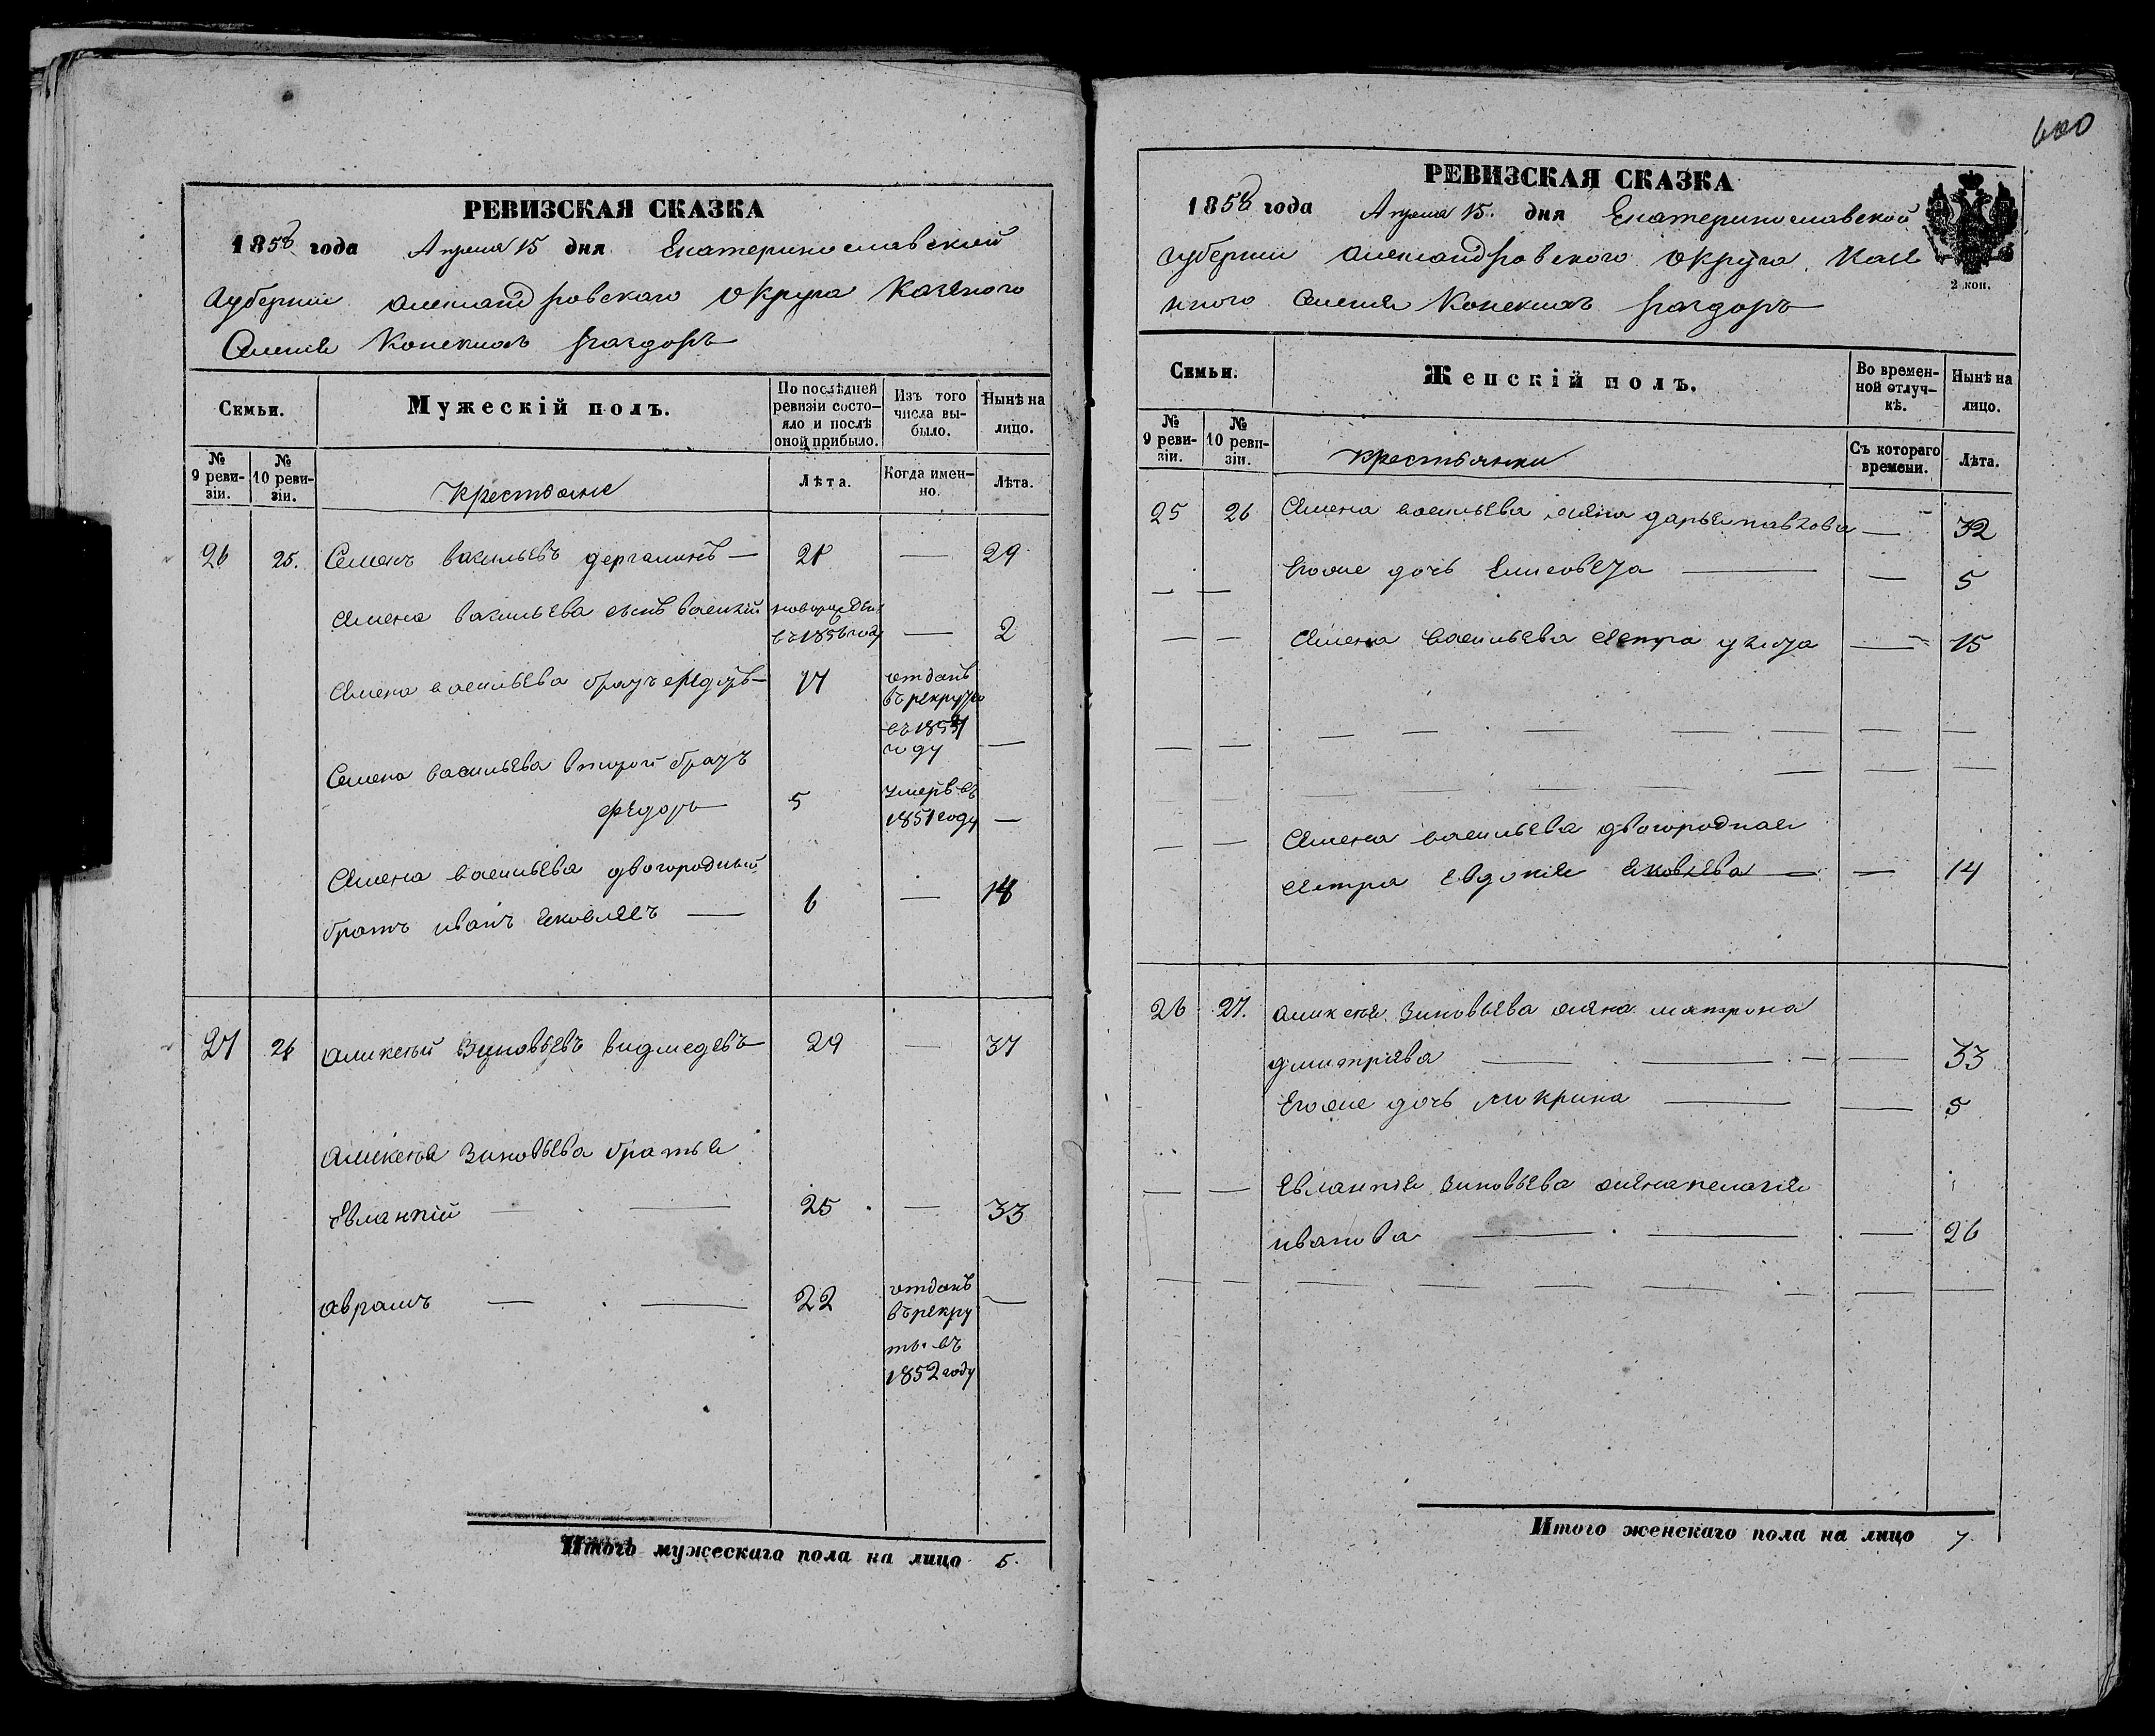 РЕВИЗСКАЯ СКАЗКА
1858 года Апреля 15 дня Екатеринославской
губернии Александровского округа Казеного
Селенія Конскихъ Раздоръ
Семьи.
Мужескій полъ.
По послѣдней ревизіи состо-
яло и послѣ
оной прибыло.
Изъ того
числа вы-
было.
Нынѣ на
лицо.
№
9 реви-
зіи.
№
10 реви-
зіи.
Крестьяне
Лѣта.
Когда имен-
но.
Лѣта.
26 25. Семенъ васильевъ — 21 — 29
Семена васильева сынъ василій
въ 1856 году — 2
Семена васильева братъ федоръ — 17 отданъ
въ рекруты
году —
Семена васильева второй братъ
федоръ 5 умеръ въ
1851 году —
Семена васильева двогородный
братъ иванъ яковлевъ — 6 — 14
27 26 аликсѣй Зиновьевъ видмедевъ — 29 — 37
аликсѣя Зиновьева братья
Евлампій — 25 — 33
аврамъ — 22 отданъ
въ рекру
ты въ
1852 году —
Итого мужескаго пола на лицо 5.
600
РЕВИЗСКАЯ СКАЗКА
1858 года Апреля 15. дня Екатеринославской
губернии Александровского округа Казе
нного Селенія Конскихъ Раздоръ
2 коп.
Семьи.
Женскій полъ.
Во времен-
ной отлуч-
кѣ.
Нынѣ на
лицо.
№
9 реви-
зіи.
№
10 реви-
зіи.
крестьянки
Съ котораго
времени.
Лѣта.
25 26 Семена васильева жена дарья павлова — 32
Егоже дочь Елисовета — 5
Семена васильева сестра — 15
Семена васильева двогородная
сестра Евдокія яковлева — 14
26 27. аликсѣя Зиновьева жена матрона
дмитрева — 33
Егоже дочь макрина — 5
Евлампія Зиновьева жена пелагія
иванова — 26
Итого женскаго пола на лицо 7